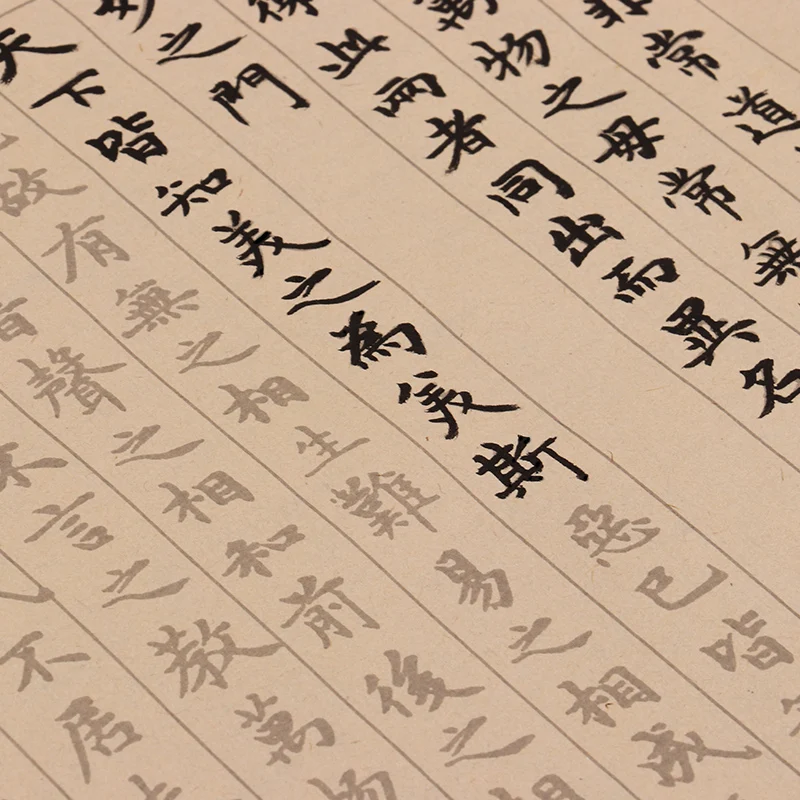 非常道
萬物之母常無
徼此兩者同出而異名
妙之門
天下皆知美之為美斯惡已皆
故有無之相生難易之相成
音聲之相和前後之相
不言之教萬物
不居